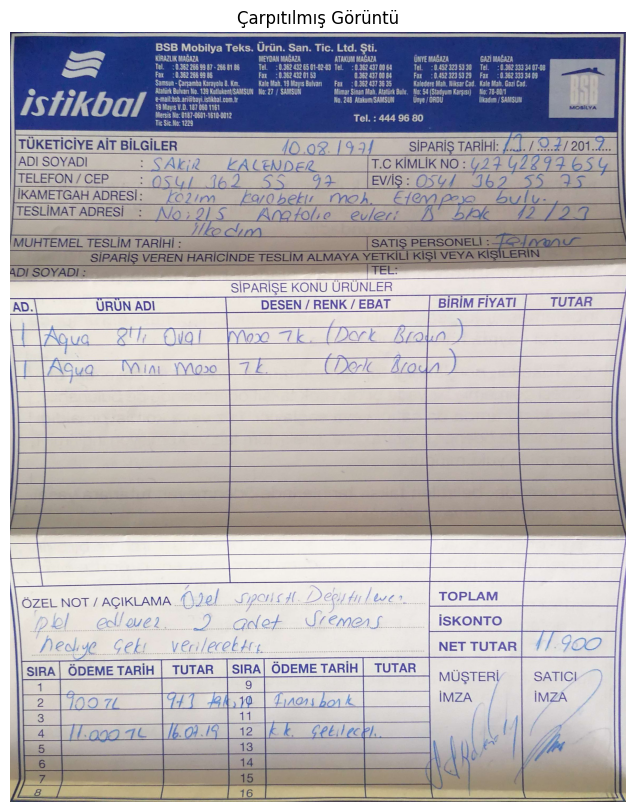 Çarpıtılmış Görüntü
istikbal
BSB Mobilya Teks. Ürün. San. Tic. Ltd. Şti.
KİRAZLIK MAĞAZA
Tel. : 0.362 266 99 87 - 266 81 86
Fax : 0.362 266 99 86
Samsun - Çarşamba Karayolu 8. Km.
Atatürk Bulvarı No. 139 Kutlukent/SAMSUN
19 Mayıs V.D. 187 060 1161
Mersis No: 0187-0601-1610-0012
Tic Sic.No: 1229
MEYDAN MAĞAZA
Tel. : 0.362 432 65 01-02-03
Fax : 0.362 432 01 53
Kale Mah. 19 Mayıs Bulvarı
No: 27 / SAMSUN
ATAKUM MAĞAZA
Tel. : 0.362 437 00 64
0.362 437 00 84
Fax : 0.362 437 36 35
Mimar Sinan Mah. Atatürk Bulv.
No. 248 Atakum/SAMSUN
ÜNYE MAĞAZA
Tel. : 0.452 323 53 30
Fax : 0.452 323 53 29
Kaledere Mah. Niksar Cad.
No: 54 (Stadyum Karşısı)
Ünye / ORDU
GAZİ MAĞAZA
Tel. : 0.362 333 34 07-08
Fax : 0.362 333 34 09
Kale Mah. Gazi Cad.
No: 78-80/1
İlkadım / SAMSUN
BSB
MOBİLYA
Tel. : 444 96 80
TÜKETİCİYE AİT BİLGİLER 10.08.1971 SİPARİŞ TARİHİ: 13 / 07 / 2019
ADI SOYADI : ŞAKİR KALENDER T.C KİMLİK NO : 42742897654
TELEFON / CEP : 0541 362 55 97 EV/İŞ : 0541 362 55 75
İKAMETGAH ADRESİ : Kazım Karabekir mah. bulv.
TESLİMAT ADRESİ : No: 215 Anatolia evleri B blok 12/23
İlkadım
MUHTEMEL TESLİM TARİHİ : SATIŞ PERSONELİ :
SİPARİŞ VEREN HARİCİNDE TESLİM ALMAYA YETKİLİ KİŞİ VEYA KİŞİLERİN
ADI SOYADI : TEL:
SİPARİŞE KONU ÜRÜNLER
AD. ÜRÜN ADI DESEN / RENK / EBAT BİRİM FİYATI TUTAR
1 Aqua 8'li Oval Masa Tk. (Dark Braun)
1 Aqua Mini Masa Tk. (Dark Braun)
ÖZEL NOT / AÇIKLAMA Özel sipariştir.
2 adet Siemens
hediye çeki verilecektir.
TOPLAM
İSKONTO
NET TUTAR 11.900
SIRA ÖDEME TARİH TUTAR SIRA ÖDEME TARİH TUTAR
1 9
2 900 TL 10 Finansbank
3 11
4 11.000 TL 16.07.19 12 k.k. çekilecek.
5 13
6 14
7 15
8 16
MÜŞTERİ
İMZA
SATICI
İMZA